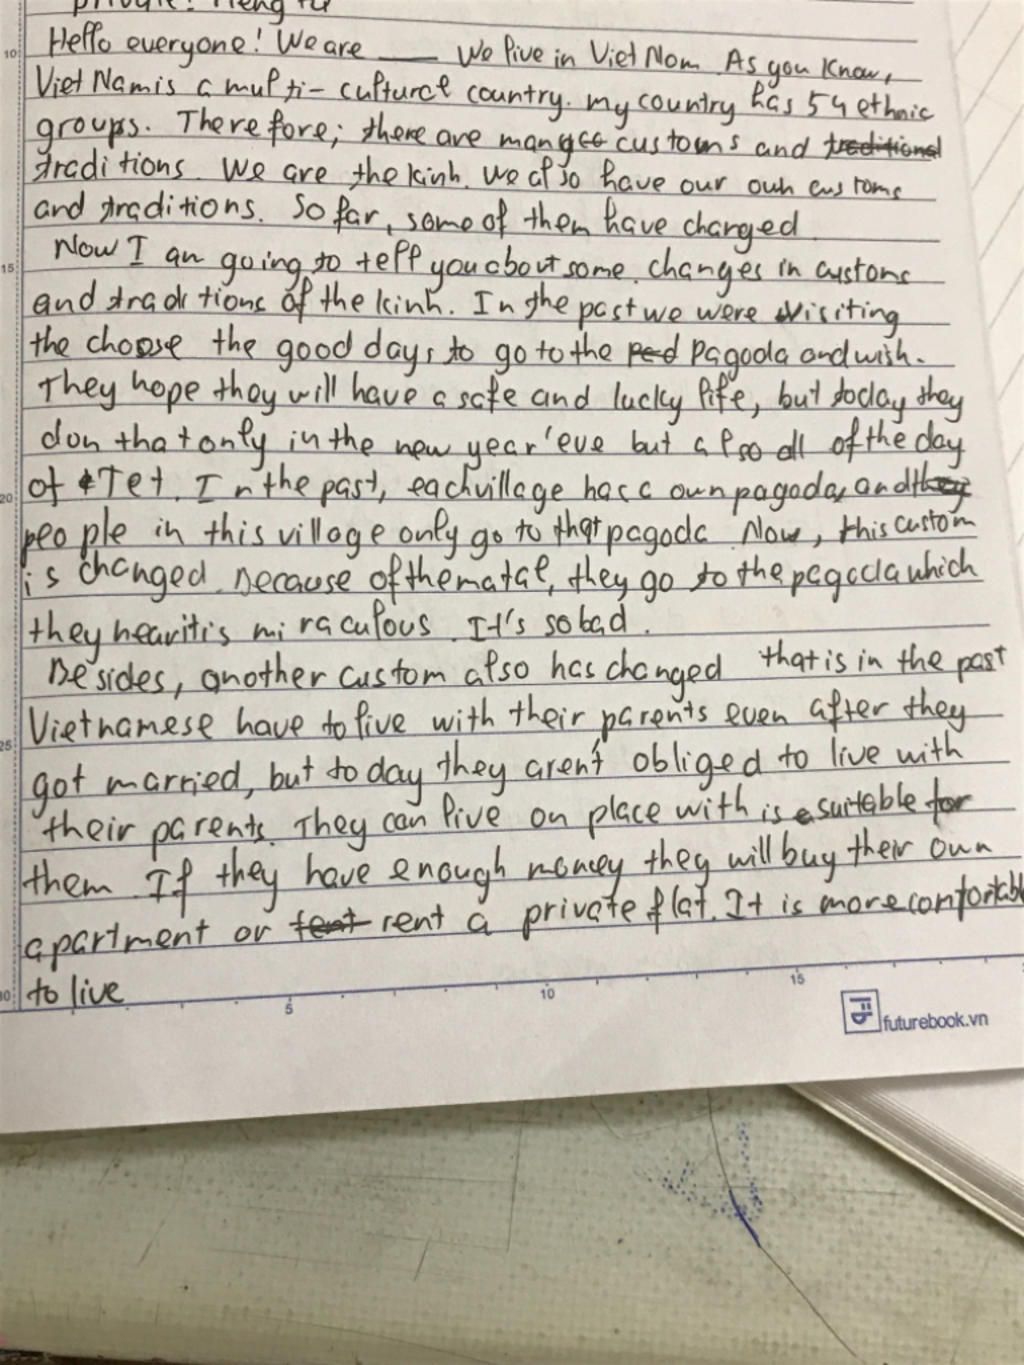 private: riêng tư
10 Hello everyone! We are ___ We live in Viet Nam. As you know,
Viet Nam is a multi-cultural country. my country has 54 ethnic
groups. Therefore, there are many customs and traditional
traditions. We are the kinh. We also have our own customs
and traditions. So far, some of them have changed
Now I an going to tell you about some changes in customs
15 and traditions of the kinh. In the past we were visiting
the choose the good days to go to the ped Pagoda and wish.
They hope they will have a safe and lucky life, but today they
don that only in the new year'eve but also all of the day
20 of Tet. In the past, each village has a own pagoda, and they
people in this village only go to that pagoda. Now, this custom
is changed. Because of the matal, they go to the pagoda which
they hear it is miraculous. It's so bad.
Besides, another custom also has changed that is in the past
25 Vietnamese have to live with their parents even after they
got married, but today they aren't obliged to live with
their parents. They can live on place with is a suitable for
them. If they have enough money they will buy their own
apartment or tent rent a private flat. It is more comfortabl
30 to live
5 10 15
futurebook.vn